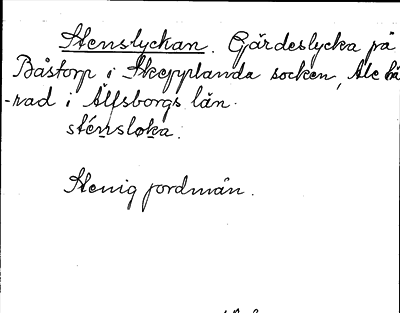 Stenslyckan. Gärdeslycka på
Båstorp i Skepplanda socken, Ale hä
-rad i Älfsborgs län.
sténsløka.
Stenig jordmån.